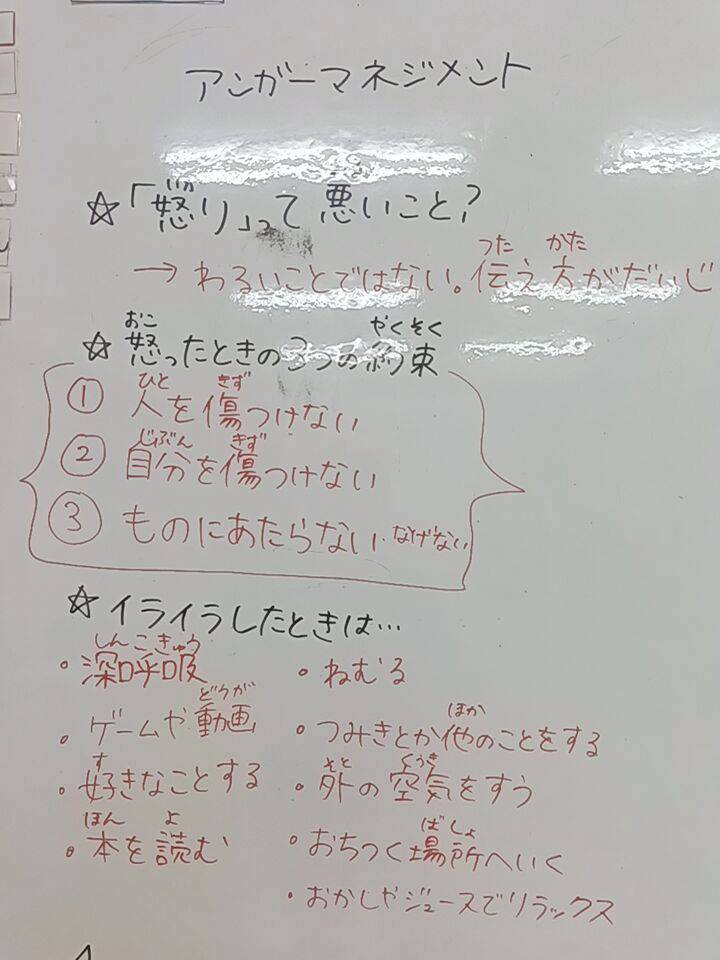 アンガーマネジメント
☆「怒り」って悪いこと?
→ わるいことではない。伝え方がだいじ
☆ 怒ったときの3つの約束
① 人を傷つけない
② 自分を傷つけない
③ ものにあたらない なげない
☆ イライラしたときは…
・深呼吸
・ゲームや動画
・好きなことする
・本を読む
・ねむる
・つみきとか他のことをする
・外の空気をすう
・おちつく場所へいく
・おかしやジュースでリラックス